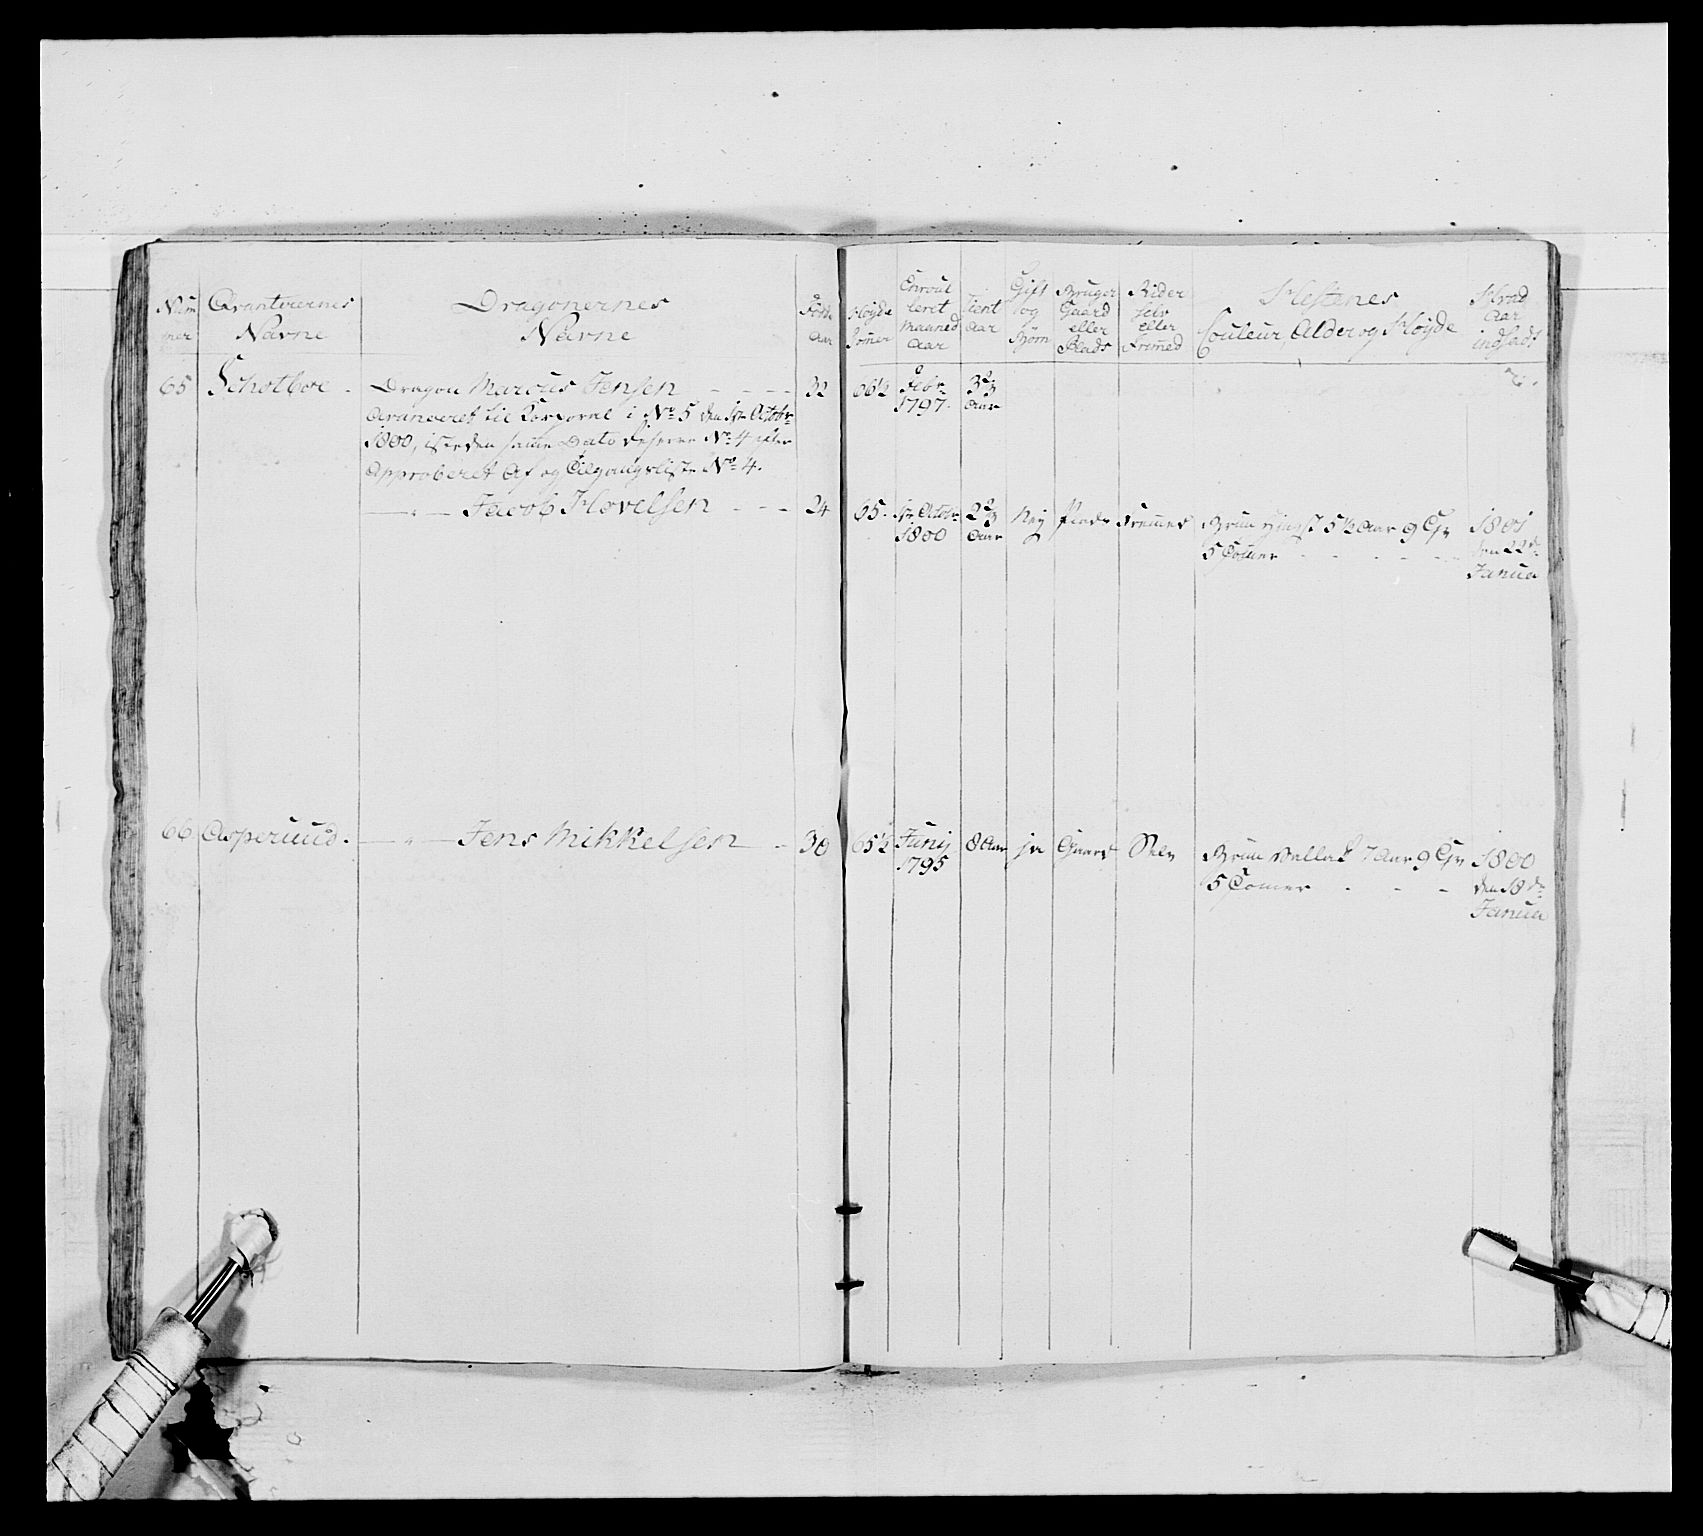 Num
mer
Qvarteernes
Navne
Dragonernes
Navne
Føde
Aar
Høyde
Tomer
Enroul
leret
Maaned
Aar
Tient
Aar
Gift
og
Børn
Bruger
Gaard
eller
Plads
Rider
Selv
eller
Fremed
Hestenes
Couleur, Alder og Høyde
Hvad
Aar
indsadt
65 Schotboe - Dragon Marcus Jensen - - - - 32 66½ Febr 1797. 3⅔ Aar
Avanceret til Corporal i No 5 den 1te Octobr
1800, isteden samme Dato Reserve No 4 efter
Approberet Af og Tilgangsliste No 4.
— " — Jacob Hovelsen - - - 24 65. 1te Octobr 1800 2⅔ Aar Nej Plads Fremed Bruun Hingst 5½ Aar 9 Qr
5 Tomer - - - - - 1801
den 22de
Janua
66 Asperuud. — " — Jens Mikkelsen - 30 65½ Junij 1795 8 Aar ja Gaard Selv Bruun Vallak 7 Aar 9 Qr
5 Tomer - - - 1800
den 18de
Janua